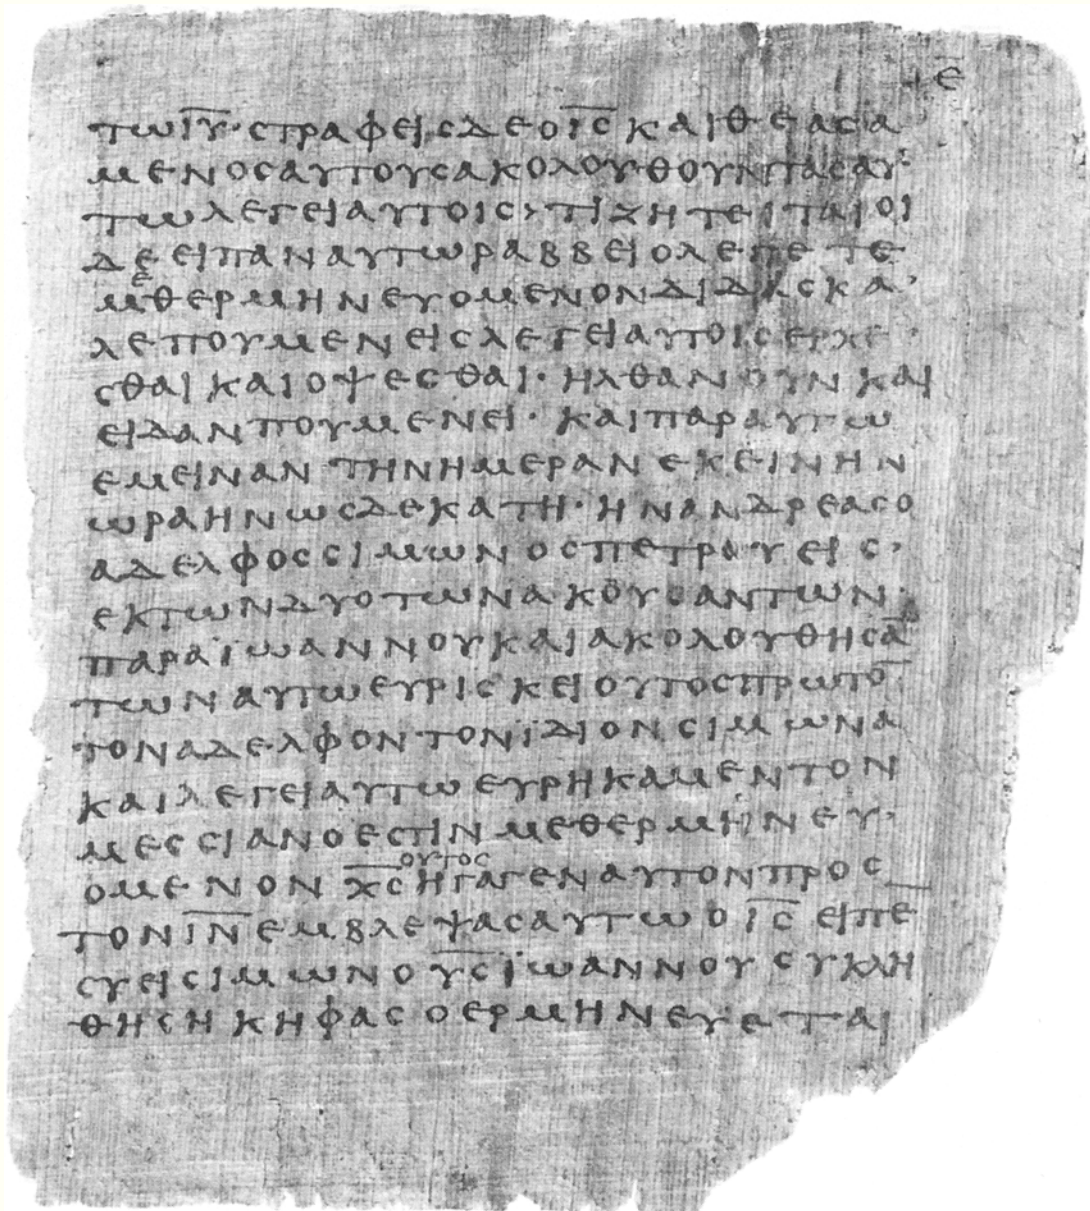 ε̅
τωι̅υ̅·στραφεισδεοι̅ς̅καιθεασα
μενοσαυτουσακολουθουντασαυ
τωλεγειαυτοισ›τιζητειταιοι
δεειπαναυτωραββειολεγετε
μεθερμηνευομενονδιδασκα›
λεπουμενεισλεγειαυτοισερχε›
σθαικαιοψεσθαι·ηλθανουνκαι
ειδανπουμενει·καιπαραυτω
εμειναντηνημερανεκεινην
ωραηνωσδεκατη·ηνανδρεασο
αδελφοσσιμωνοσπετρουεισ›
εκτωνδυοτωνακουσαντων·
παραϊωαννουκαιακολουθησα̅
τωναυτωευρισκειουτοσπρωτο̅
τοναδελφοντονϊδιονσιμωνα
καιλεγειαυτωευρηκαμεντον
μεσσιανοεστινμεθερμηνευ›
ουτοσ
ομενονχ̅ς̅ηγαγεναυτονπροσ
τονι̅ν̅εμβλεψασαυτωοι̅ς̅ειπε
συεισιμωνου̅ς̅ϊωαννουσυκλη
θησηκηφασοερμηνευεται